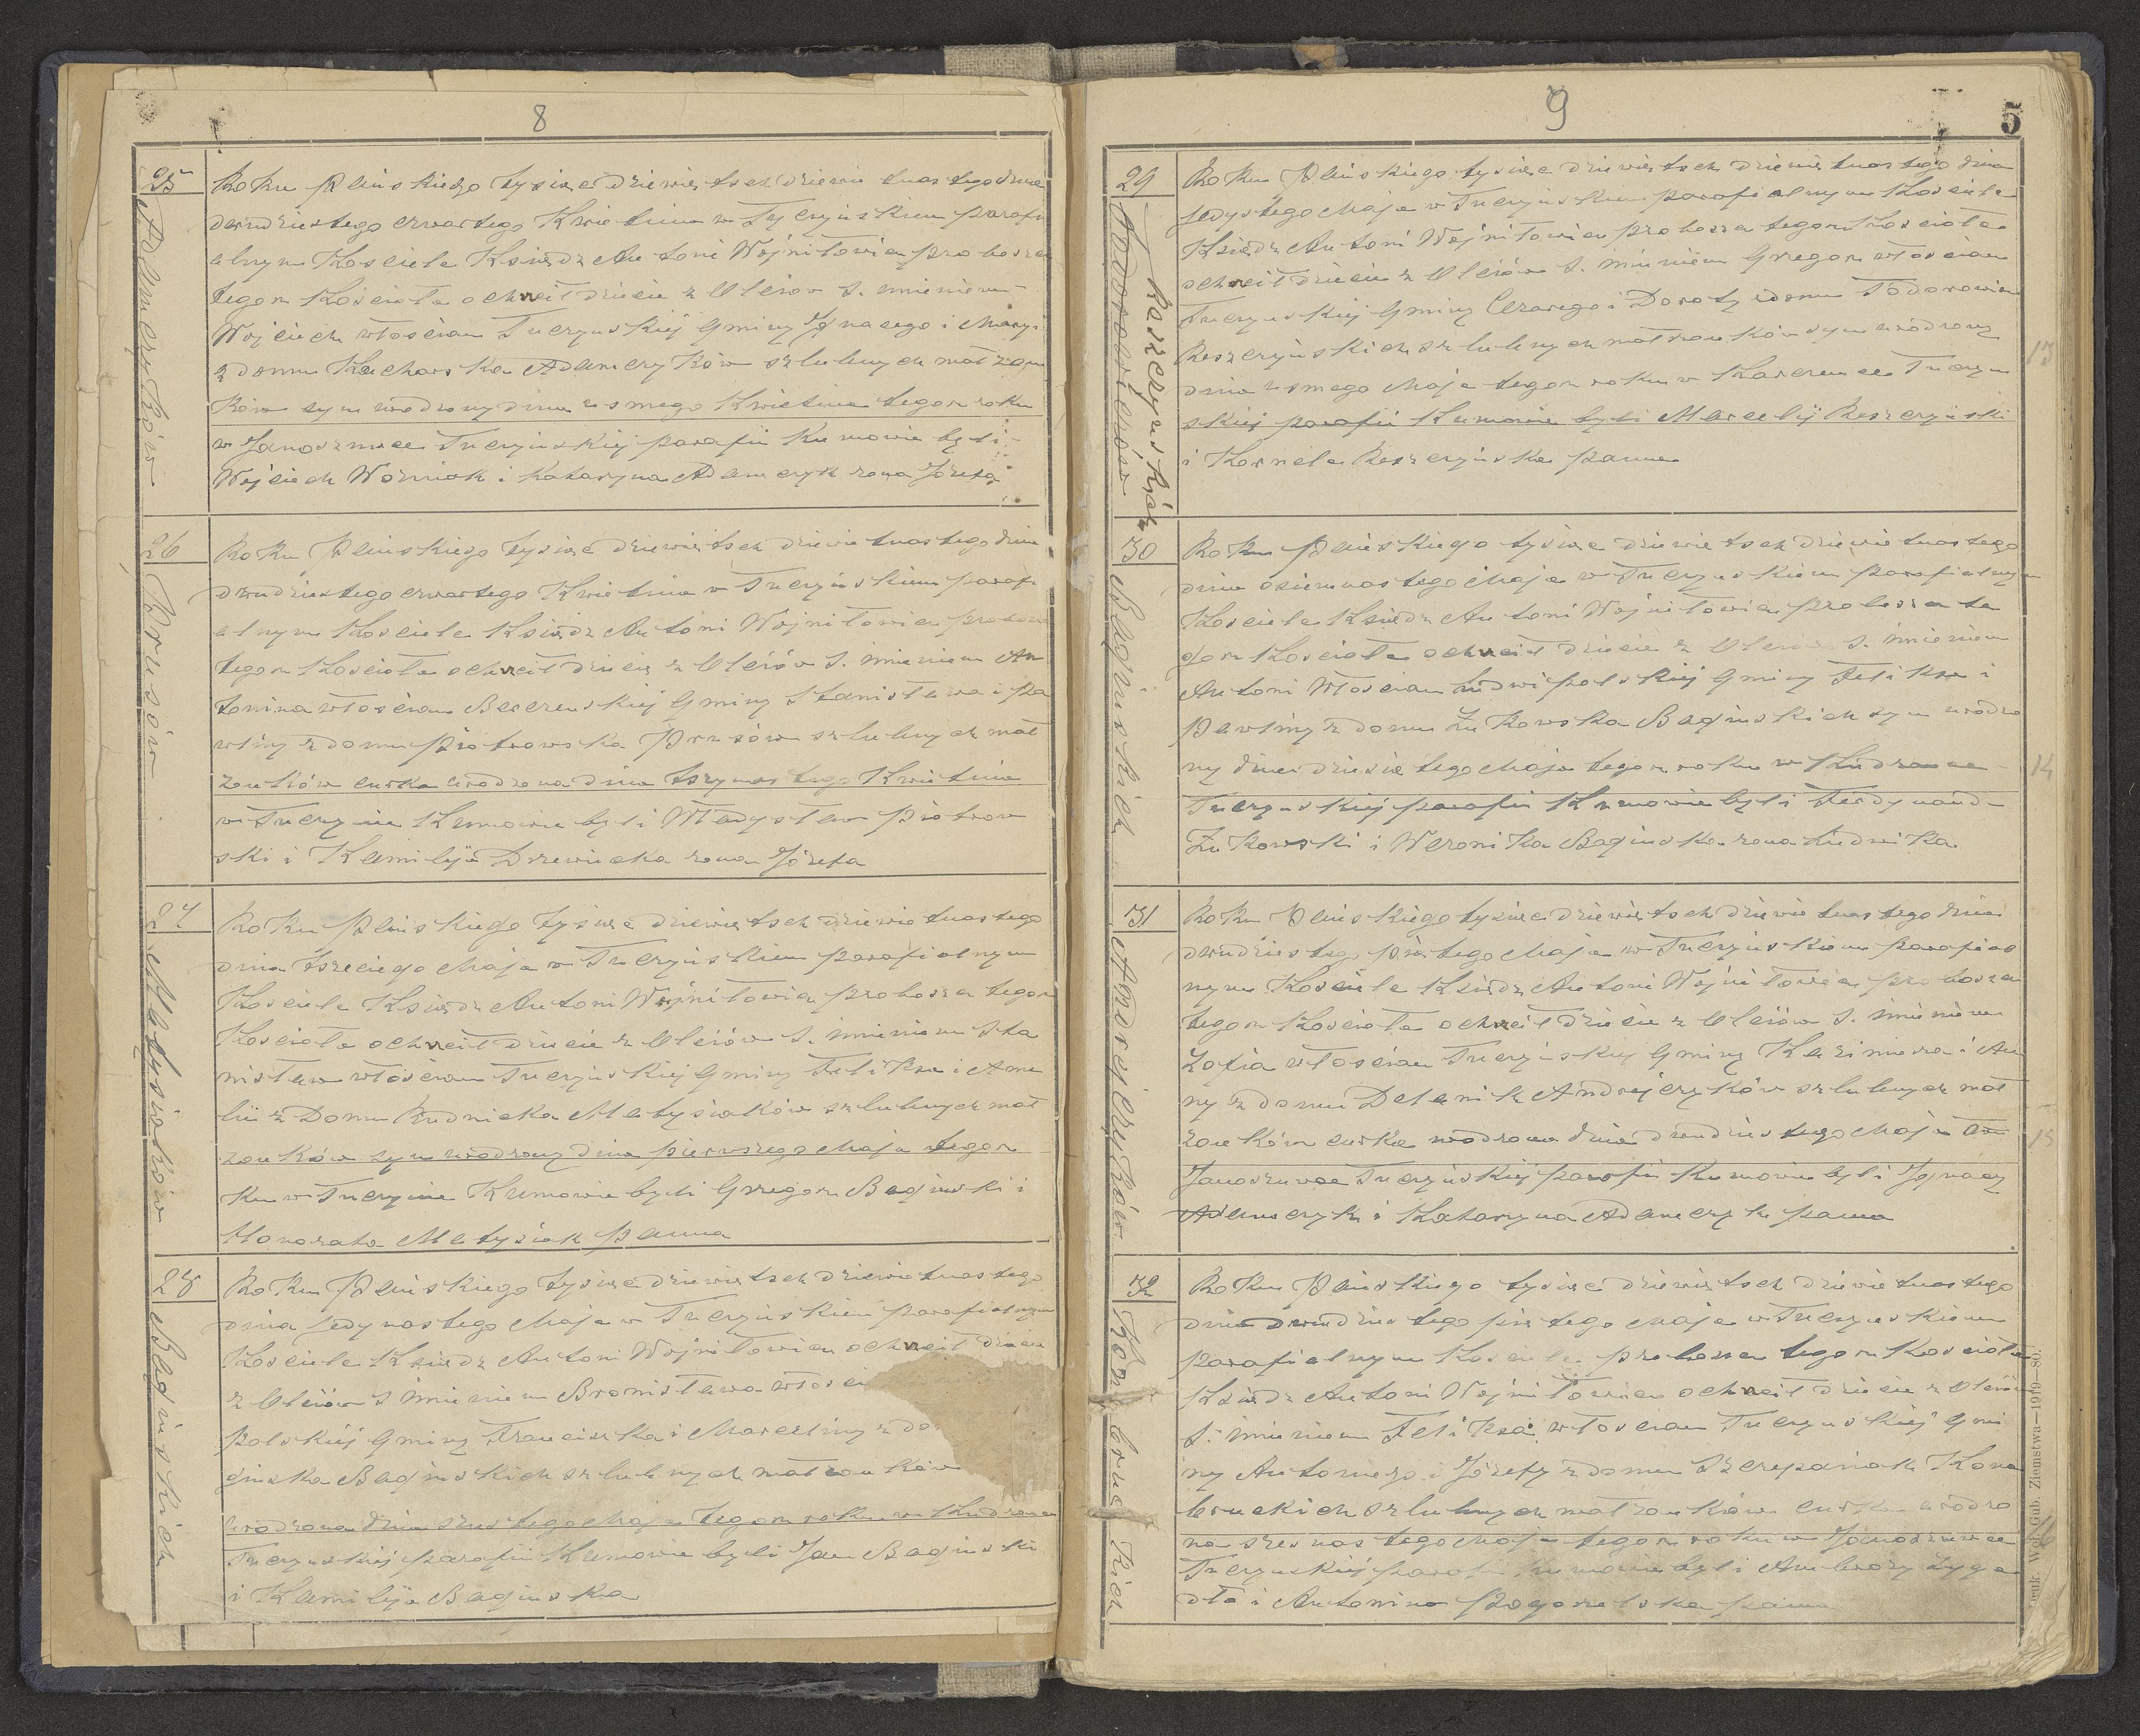 8
25
Adamczyków
Roku Pańskiego tysiąc dziewiętsch dziewietnastego dnia
dwudziestego czwartego Kwietnia w Tuczyńskiem parafi
alnym Kosciele Ksiądz Antoni Wojniłowicz proboszcz
tegoz Kościoła ochrcił dziecie z Olejów S. imieniem
Wojciech włoscian Tuczynskiej Gminy Ignacego i Maryi
z domu Kucharska Adamczyków szlubnych małzon
ków syn urodzony dnia usmego Kwietnia tegoz roku
w Janoszuwce Tuczynskiej parafii Kumowie byli
Wojciech Woźniak i Katarzyna Adamczyk zona Józefa
26
Prusów
Roku Pańskiego tysiąc dziewiętsch dziewietnastego dnia
dwudziestego czwartego Kwietnia w Tuczyńskiem parafi
alnym Kosciele Ksiądz Antoni Wojniłowicz probosz
tegoz Kościoła ochrcił dziecię z Olejów S. imieniem An
tonina włościan Beczenskiej Gminy Stanisława i Pa
wliny z domu Piotrowska Prusów szlubnych mał
zonków curka urodzona dnia trzynastego Kwietnia
w Tuczynie Kumowie byli Władysław Piotrow
ski i Kamilija Drzewiecka zona Józefa
27
Matysiaków
Roku Pańskiego tysiąc dziewiętsch dziewietnastego
dnia trzeciego Maja w Tuczyńskiem parafialnym
Kosciele Ksiądz Antoni Wojniłowicz proboszcz tegoz
Kościoła ochrcił dziecie z Olejów S. imieniem Sta
nisław włościan Tuczyńskiej Gminy Feliksa i Ame
lii z Domu Rudnicka Matysiaków szlubnych mał
zonków syn urodzony dnia pierwszego Maja tegoz
ku w Tuczynie Kumowie byli Grzegorz Baginski i
Honorata Matysiak panna
28
Baginskich
Roku Pańskiego tysiąc dziewiętsch dziewietnastego
dnia jedynastego Maja w Tuczyńskiem parafialnym
Kosciele Ksiądz Antoni Wojniłowicz ochrcił dziecie
z Olejów S imieniem Bronisława włosci
polskiej Gminy Franciszka i Marceliny z do
ginska Baginskich szlubnych małzonków
urodzona dnia szustego Maja tegoz roku w Chudzowce
Tuczynskiej parafii Kumowie byli Jan Baginski
i Kamilija Baginska
9
5
29
Raszczynskich
Todorowiczów
Roku Pańskiego tysiąc dziewiętsch dziewietnastego dnia
jedynstego Maja w Tuczyńskiem parafialnym Kosciele
Ksiądz Antoni Wojniłowicz proboszcz tegoz Kościoła
ochrcił dziecie z Olejów S. imieniem Grzegorz włoscian
Tuczynskiej Gminy Cezarego i Doroty zdomu Todorowicz
Reszczyńskich szlubnych małzonków syn urodzony
dnia usmego Maja tegoz roku w Tuczyn
skiej parafii Kumowie byli Marcelij Reszczyński
i Kornela Reszczyńska panna
13
30
Baginskich
Roku Pańskiego tysiąc dziewietsch dziewietnastego
dnia osiemnastego Maja w Tuczynskiem parafialnym
Kosciele Ksiądz Antoni Wojniłowicz proboszcz te
goz Kościoła ochrcił dziecie z Olejów S. imieniem
Antoni włościan Ludwipolskiej Gminy Feliksa i
Pawliny z domu Zukowska Baginskich syn urodzo
ny dnia dziesiętego Maja tegoz roku w Chudzowce
Tuczynskiej parafii Kumowie byli Ferdynand
Zukowski i Weronika Baginska zona Ludwika
14
31
Andrejczyków
Roku Pańskiego tysiąc dziewiętsch dziewietnastego dnia
dwudziestego piątego Maja w Tuczyńskiem parafial
nym Kosciele Ksiądz Antoni Wojniłowicz proboszcz
tegoz Kościoła ochrcił dziecie z Olejów S. imieniem
Zofia włościan Tuczyńskiej Gminy Kazimierza i An
ny z domu Delanik Andrejczyków szlubnych mał
zonków curka urodzona dnia dwudziestego Maja w
Janoszuwce Tuczyńskiej parafii Kumowie byli Ignacy
Adamczyk i Katarzyna Adamczyk panna
15
32
Roku Pańskiego tysiąc dziewiętsch dziewietnastego
dnia dwudziestego piątego Maja w Tuczynskiem
parafialnym Kosciele proboszcz tegoz Kościoła
Ksiądz Antoni Wojniłowicz ochrcił dziecie z Olejów
S. imieniem Feliksa włoscian Tuczynskiej Gmi
ny Antoniego i Józefy z domu Szczepaniak Kona
bruckich szlubnych małzonków curka urodzo
na szesnastego Maja tegoz roku w Janoszuwce
Tuczynskiej parafii Kumowie byli Ambrozy Zyga
dło i Antonina Pogorzelska panna
Druk. Woł. Gub. Ziemstwa—1919—80.